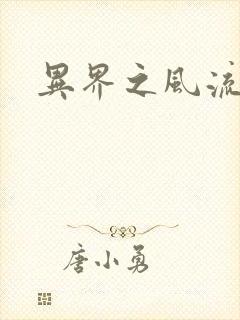 異界之風流
唐小勇